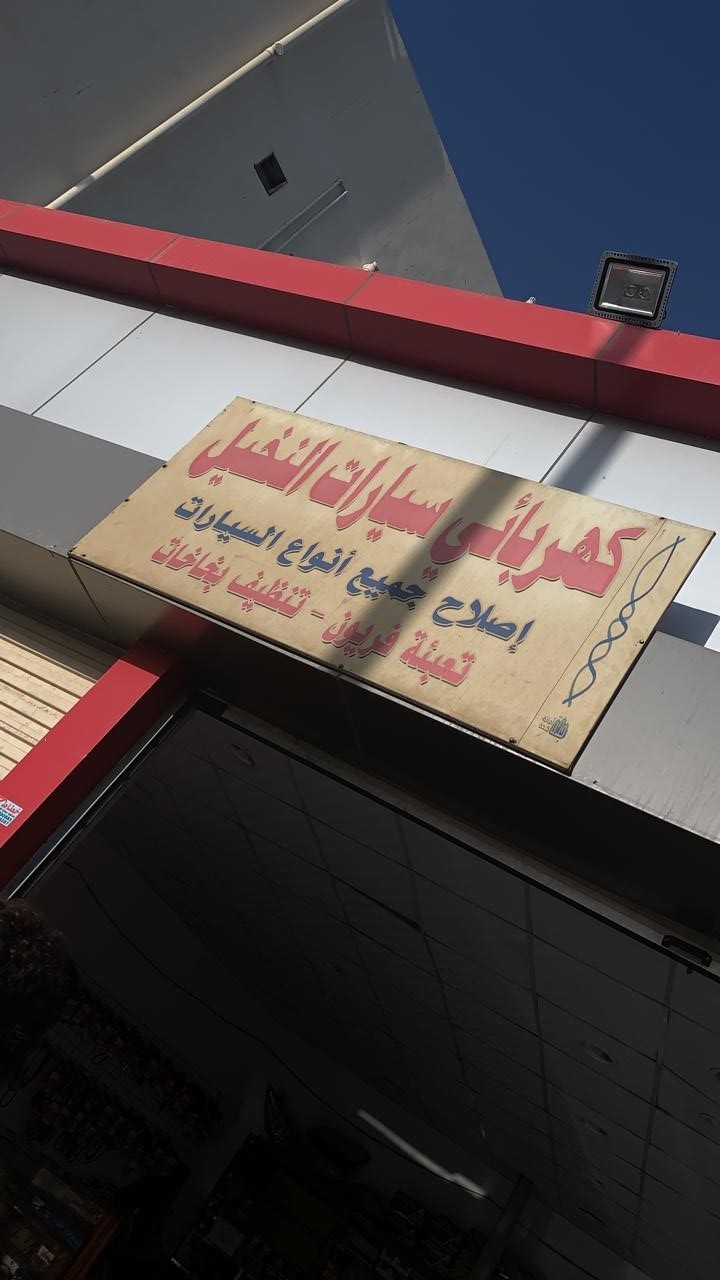 كهربائي سيارات النخيل
إصلاح جميع أنواع السيارات
تعبئة فريون - تنظيف بخاخات